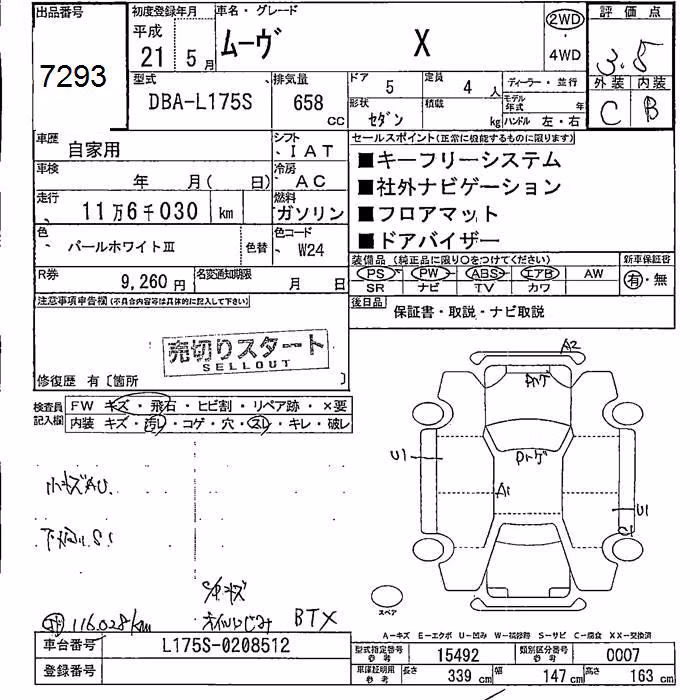 出品番号 初度登録年月 車名・グレード 2WD 評価点
7293 平成 21 年 5 月 ムーヴ X ・ 4WD 3.5
外装 内装
C B
型式 排気量 ドア 定員 ディーラー・並行
DBA-L175S 658 CC 5 4 人
形状 積載 モデル年式 年
セダン kg ハンドル 左・右
車歴 シフト セールスポイント(正常に機能するものに限ります)
自家用 IAT ■キーフリーシステム
車検 冷房 ■社外ナビゲーション
年 月( 日) AC ■フロアマット
走行 燃料 ■ドアバイザー
11万6千030 km ガソリン
色 色替 色コード
パールホワイトⅢ W24
装備品(純正品に限り○をつけてください) 新車保証書
PS PW ABS エアB AW 有・無
SR ナビ TV カワ
R券 名変通知期限
9,260円 月 日
後日品 保証書・取説・ナビ取説
注意事項申告欄(不具合内容等は具体的に記入して下さい)
売切りスタート
SELLOUT
修復歴 有〔箇所 〕
検査員記入欄 FW キズ・飛石・ヒビ割・リペア跡・×要
内装 キズ・汚レ・コゲ・穴・スレ・キレ・破レ
A2
U1
A1
U1
小キズAU.
下廻りS1
116.028/km
BTX
スペア
A-キズ E-エクボ U-凹み W-補修跡 S-サビ C-腐食 XX-交換済
車台番号 L175S-0208512
登録番号
型式指定番号参考 15492 類別区分番号参考 0007
車庫証明用参考 長さ 339 cm 幅 147 cm 高さ 163 cm